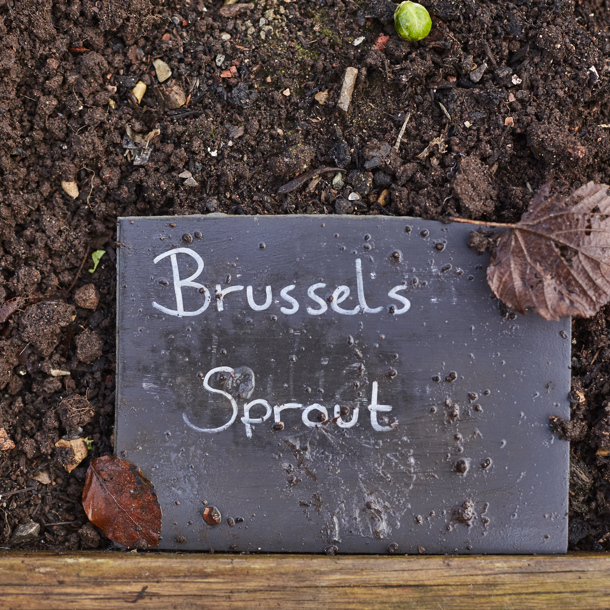 Brussels
Sprout